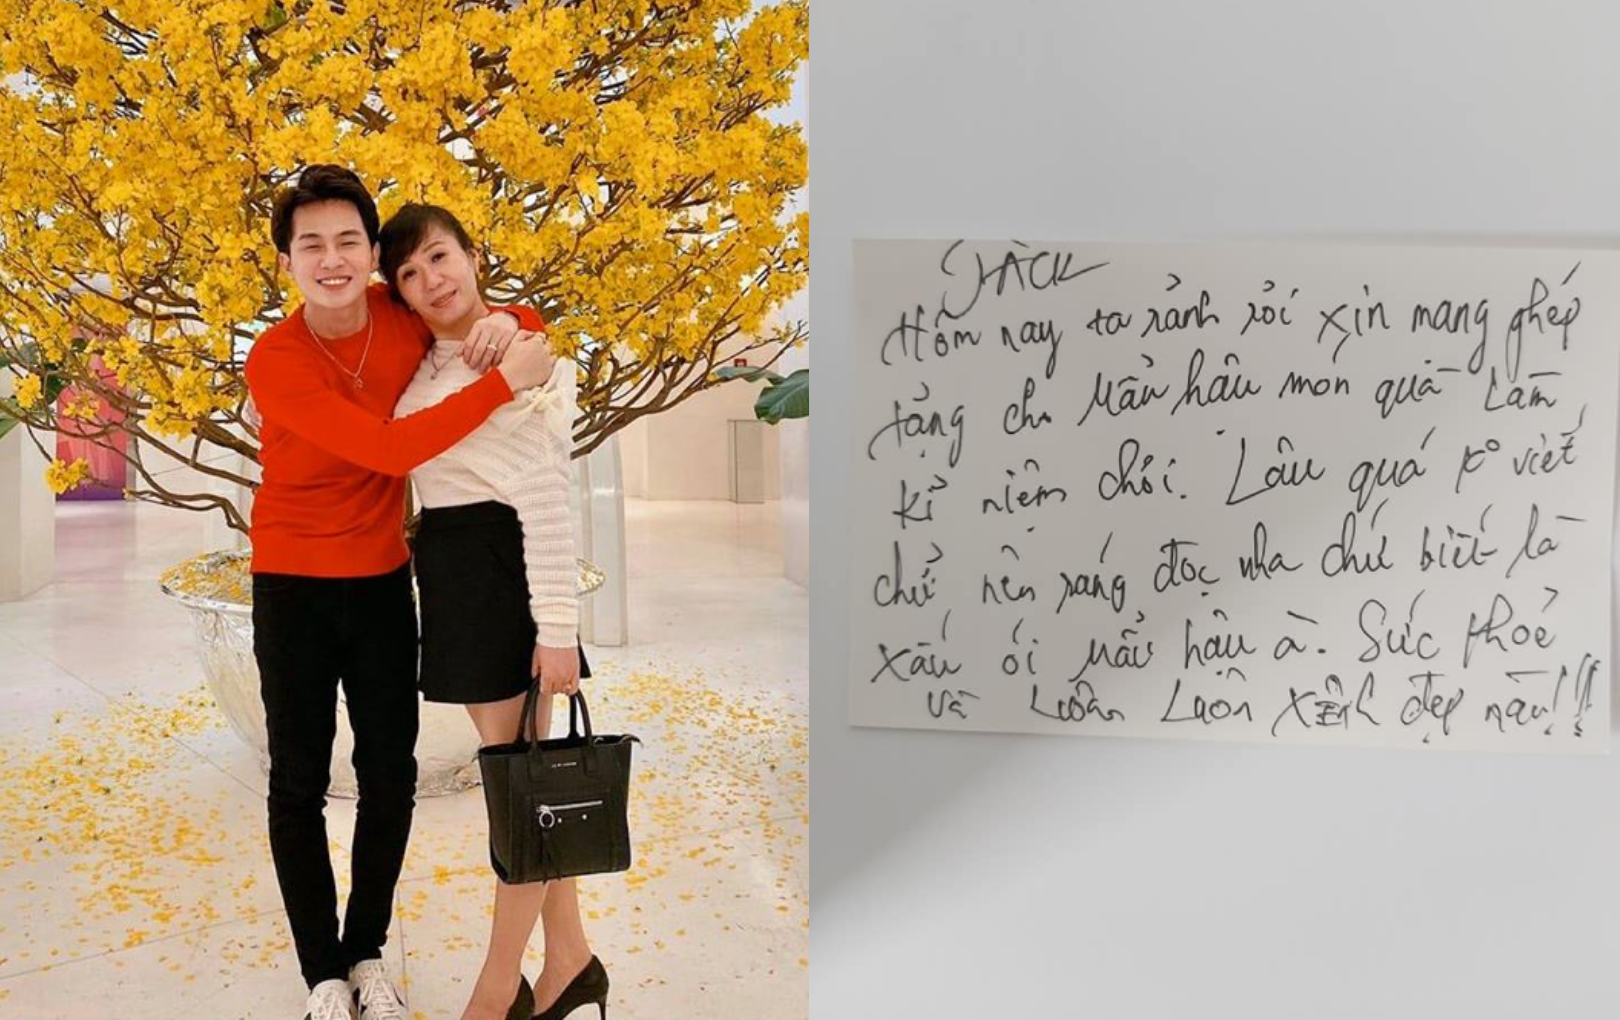 JACK
Hôm nay ta rảnh rỗi xin mang ghép
tặng cho Mẫu hậu món quà làm
kỉ niệm chơi. Lâu quá ko viết
chữ nên ráng đọc nha chứ biết là
xấu ói mẫu hậu à. Sức khỏe
và luôn luôn xinh đẹp nàu!!!